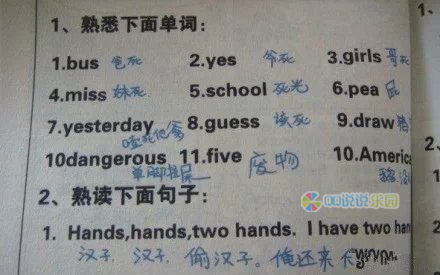 1、熟悉下面单词：
1.bus 爸死 2.yes 爷死 3.girls 哥死
4.miss 妹死 5.school 死光 6.pea 屁
7.yesterday 8.guess 该死 9.draw
10dangerous 11.five 废物 10.America
单脚拉屎
叩叩说说乐园
2、熟读下面句子：
1. Hands,hands,two hands. I have two han
汉子，汉子，偷汉子。俺还来